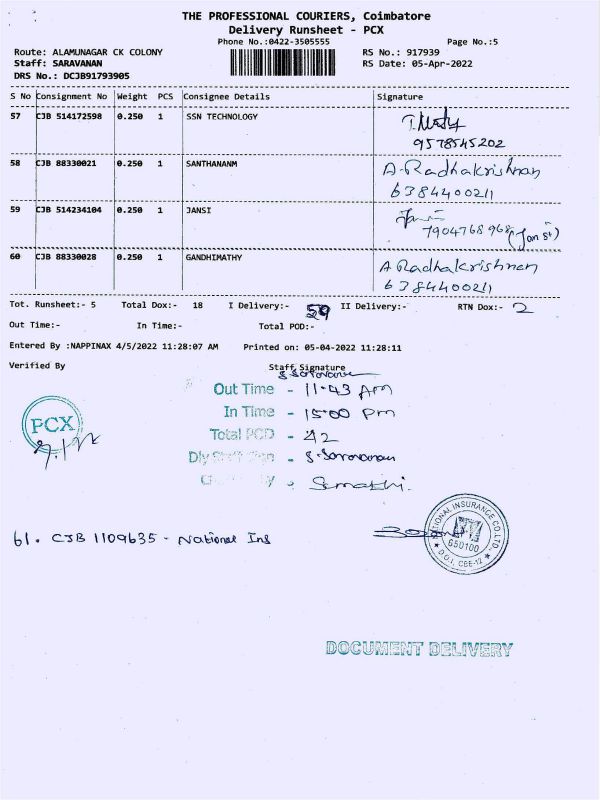 THE PROFESSIONAL COURIERS, Coimbatore
Delivery Runsheet - PCX
Phone No.:0422-3505555 Page No.:5
Route: ALAMUNAGAR CK COLONY RS No.: 917939
Staff: SARAVANAN RS Date: 05-Apr-2022
DRS No.: DCJB91793905
S No Consignment No Weight PCS Consignee Details Signature
57 CJB 514172598 0.250 1 SSN TECHNOLOGY
9578545202
58 CJB 88330021 0.250 1 SANTHANANM A.Radhakrishnan
6384400211
59 CJB 514234104 0.250 1 JANSI
7904768968
60 CJB 88330028 0.250 1 GANDHIMATHY A Radhakrishnan
6384400211
Tot. Runsheet:- 5 Total Dox:- 18 I Delivery:- 59 II Delivery:- RTN Dox:- 2
Out Time:- In Time:- Total POD:-
Entered By :NAPPINAX 4/5/2022 11:28:07 AM Printed on: 05-04-2022 11:28:11
Verified By Staff Signature
S Saravanan
Out Time - 11-43 Am
In Time - 15:00 Pm
PCX
Total POD - 42
Dly Staff Sign - S. Saravanan
61. CJB 1109635 - National Ins
NATIONAL INSURANCE CO. LTD.
650100
D.O.I, CBE-12
DOCUMENT DELIVERY